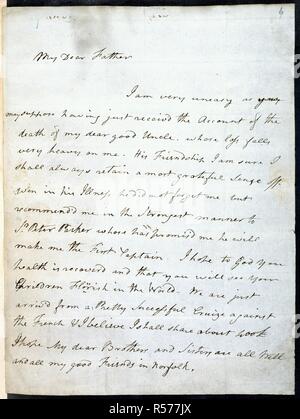 6
My Dear Father
I am very uneasy as you
may suppose having just receivd the Account of the
death of my dear good Uncle. whose loss falls
very heavy on me. His Friendship I am sure I
shall always retain a most grateful Sense off
even in his Illness he did not forget me but
recommended me in the Strongest manner to
Sr Peter Parker whose has promised me he will
make me the First Captain I hope to God your
health is recoverd and that you will see your
Children Flourish in the World. We are just
arrived from a Pretty Successful Cruize against
the French & I believe I shall share about 400£
I hope My dear Brothers and Sisters are all Well
and all my good Friends in Norfolk.
alamy
Image ID: R577JX
www.alamy.com